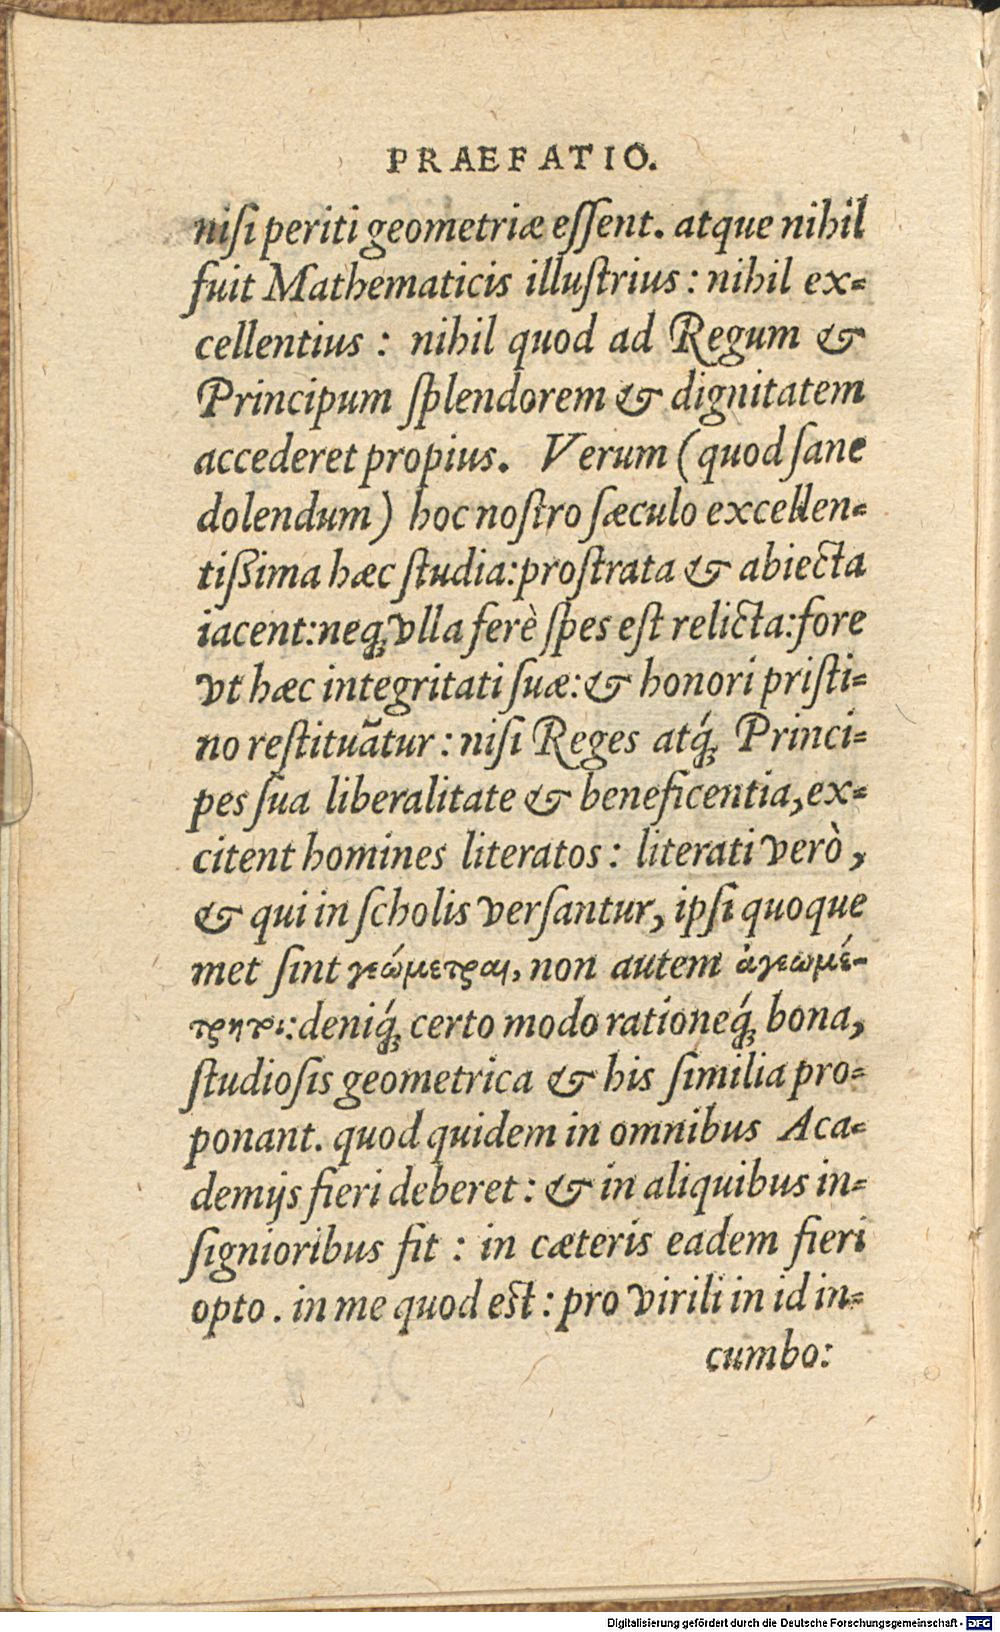 PRAEFATIO.
niſi periti geometriæ eſſent. atque nihil
fuit Mathematicis illuſtrius: nihil ex=
cellentius: nihil quod ad Regum &
Principum ſplendorem & dignitatem
accederet propius. Verum (quod ſane
dolendum) hoc noſtro ſæculo excellen=
tiſsima hæc ſtudia: proſtrata & abiecta
iacent: neq; vlla ferè ſpes eſt relicta: fore
vt hæc integritati ſuæ: & honori priſti=
no reſtituãtur: niſi Reges atq́; Princi=
pes ſua liberalitate & beneficentia, ex=
citent homines literatos: literati verò,
& qui in ſcholis verſantur, ipſi quoque
met ſint γεώμετραι, non autem ἀγεωμέ-
τρητοι: deniq́; certo modo rationeq́; bona,
ſtudioſis geometrica & his ſimilia pro=
ponant. quod quidem in omnibus Aca=
demijs fieri deberet: & in aliquibus in=
ſignioribus fit: in cæteris eadem fieri
opto. in me quod eſt: pro virili in id in=
cumbo:
Digitalisierung gefördert durch die Deutsche Forschungsgemeinschaft - DFG